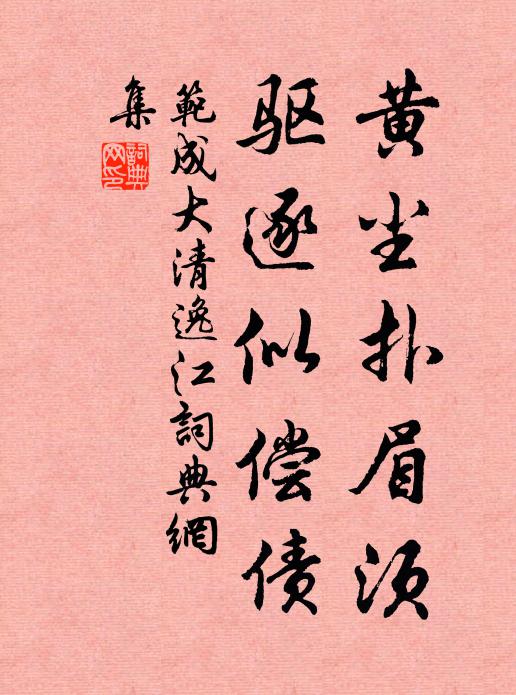 黄尘扑眉须
驱逐似偿债
範成大清逸江詞典網
集
詞典网印